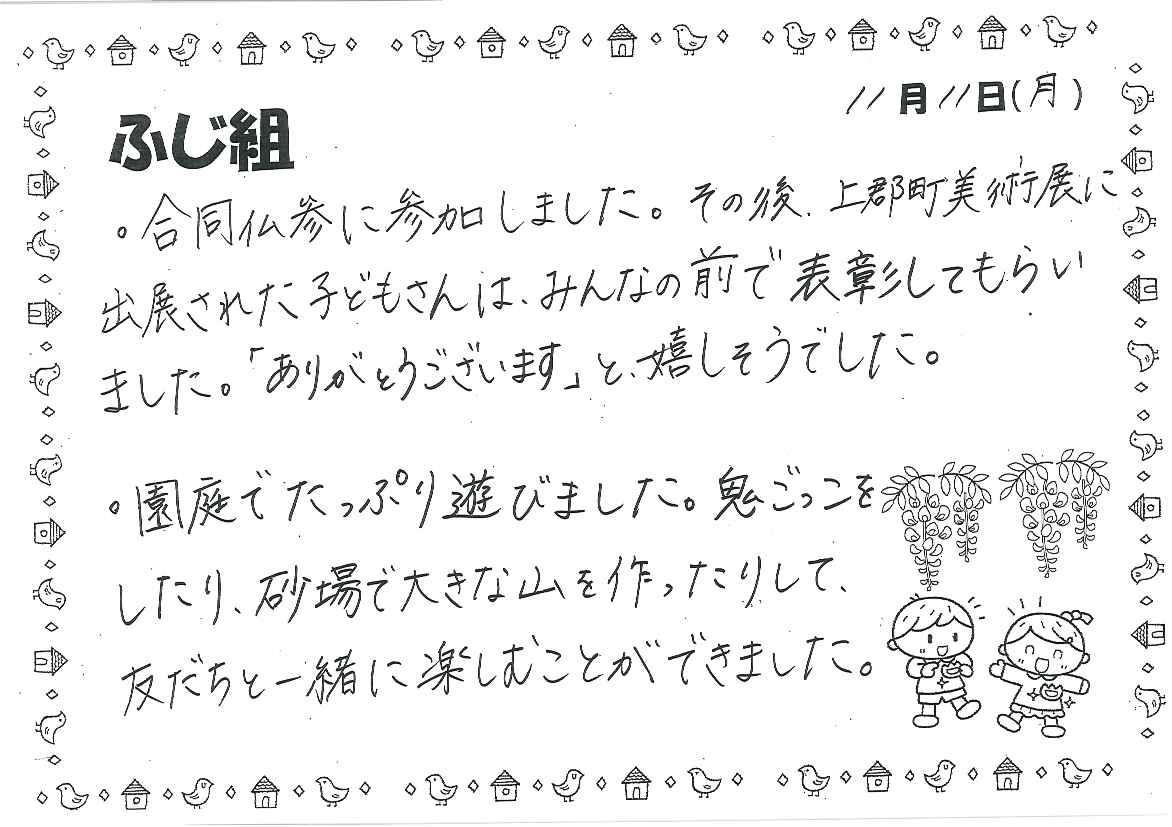 11月11日(月)
ふじ組
。合同仏参に参加しました。その後、上郡町美術展に
出展された子どもさんは、みんなの前で表彰してもらい
ました。「ありがとうございます」と、嬉しそうでした。
。園庭でたっぷり遊びました。鬼ごっこを
したり、砂場で大きな山を作ったりして、
友だちと一緒に楽しむことができました。